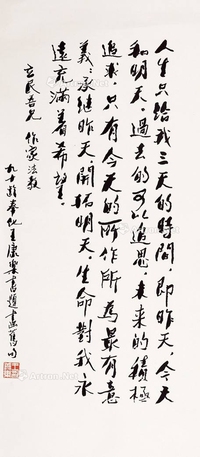 人生只给我三天的時間，即昨天，今天
和明天。過去的可以追思，未来的積極
追求，只有今天的所作所為最有意
義：承继昨天，開拓明天。生命對我永
遠充滿着希望。
立民吾兄 作家法教